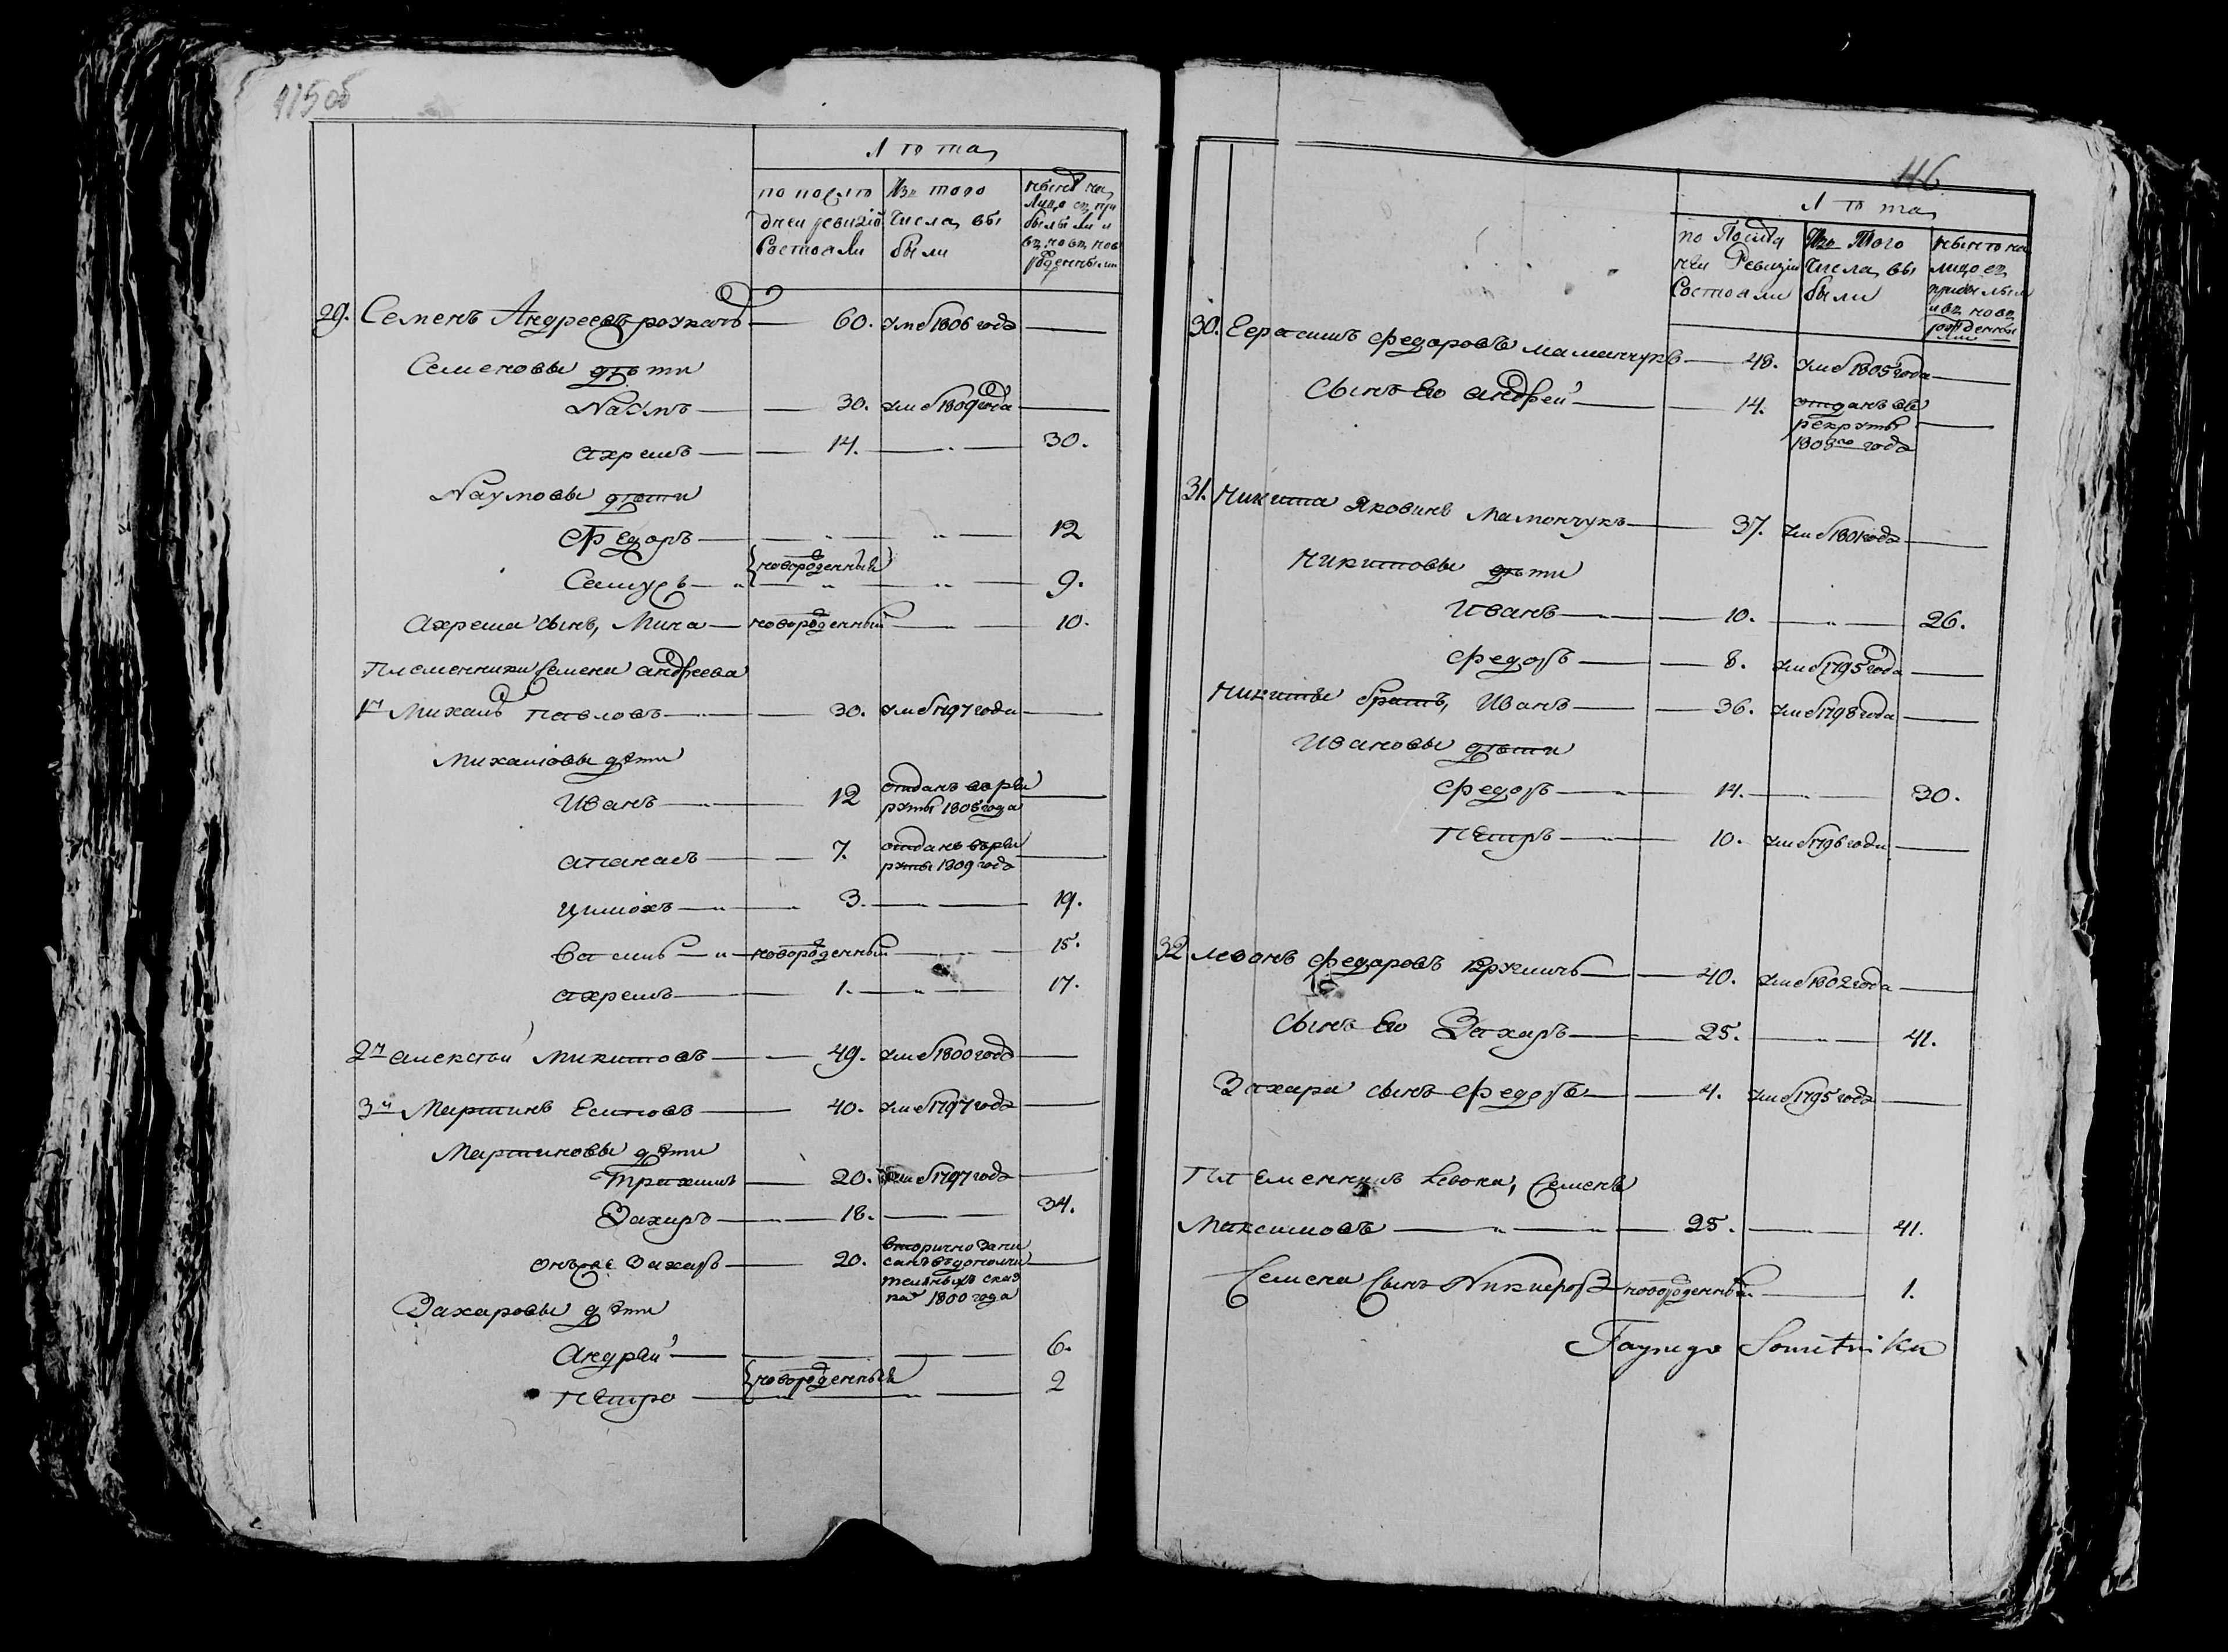 415об
Лѣта
по послѣ
дней ревизіи
Состояли
Изъ того
Числа вы
были
нынѣ на
Лицо съ при
былыми и
вновь
рожденными
29. Семенъ Андреевъ 60. умеѣ 1806 года
Семеновы дѣти
Наумъ 30. умеѣ 1809 года
Ахремъ 14. 30.
Наумовы дѣти
Федоръ 12
новорожденныи
9.
Ахрема сынъ, Мина новорожденный 10.
Племенники Семена Андреева
1й Михаилъ Павловъ 30. умеѣ 1797 года
Михаиловы дѣти
Иванъ 12 отданъ въ рек
руты 1806 года
Апанасъ 7. отданъ въ рек
руты 1809 года
Цимохъ 3. 19.
Василь новорожденный 15.
Ахремъ 1. 17.
2й Алексѣй Микитовъ 49. умеѣ 1800 года
3й Мартинъ Есиповъ 40. умеѣ 1797 года
Мартиновы дѣти
Трахимъ 20. умеѣ 1797 года
Захаръ 18. 34.
онъ же Захаръ 20. вторично запи
санъ въ дополни
тельныхъ сказ
ка 1800 года
Захаровы дѣти
Андрей 6.
новорожденныи
Петро 2
116
Лѣта
по Послѣд
ней Ревизіи
Состояли
Изъ Того
Числа вы
были
нынѣ на
лицо съ
прибылыми
и вновь
рожденны
ми
30. Герасимъ Федоровъ Маманчукъ 48. умеѣ 1805 года
Сынъ Его Андрей 14. отданъ въ
рекруты
1805го года
31. Никита Яковинъ Мамончукъ 37. умеѣ 1801 года
Никитовы дѣти
Иванъ 10. 26.
Федоръ 8. умеѣ 1795 года
Никиты братъ, Иванъ 36. умеѣ 1798 года
Ивановы дѣти
Федоръ 14. 30.
Петръ 10. умеѣ 1796 года
32 Левонъ Федоровъ 40. умеѣ 1802 года
Сынъ Его Захаръ 25. 41.
Захара сынъ Федоръ 4. умеѣ 1795 года
Племенникъ Левона, Семенъ
Максимовъ 25. 41.
Семена Сынъ Никиеръ новорожденный 1.